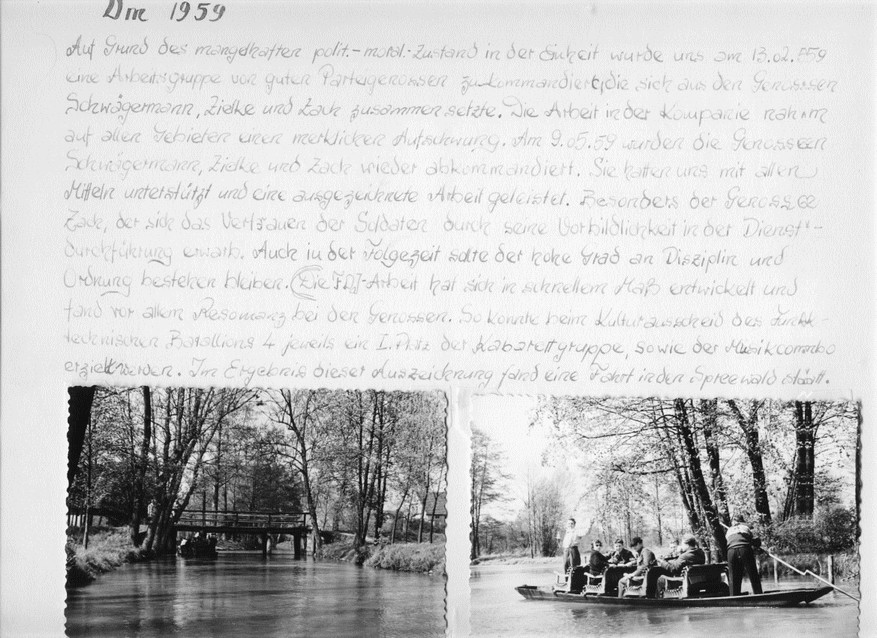 Im 1959
Auf Grund des mangelhaften polit.-moral.-Zustand in der Einheit wurde uns am 13.02.959
eine Arbeitsgruppe von guten Parteigenossen zukommandiert, die sich aus den Genossen
Schwägermann, Zielke und Zack zusammen setzte. Die Arbeit in der Kompanie nahm
auf allen Gebieten einen merklichen Aufschwung. Am 9.05.59 wurden die Genossen
Schwägermann, Zielke und Zack wieder abkommandiert. Sie hatten uns mit allen
Mitteln unterstützt und eine ausgezeichnete Arbeit geleistet. Besonders der Genosse
Zack, der sich das Vertrauen der Soldaten durch seine Vorbildlichkeit in der Dienst-
durchführung erwarb. Auch in der Folgezeit sollte der hohe Grad an Disziplin und
Ordnung bestehen bleiben. (Die FDJ-Arbeit hat sich in schnellem Maß entwickelt und
fand vor allem Resonanz bei den Genossen. So konnte beim Kulturausscheid des Funk-
technischen Batallions 4 jeweils ein I. Platz der Kabarettgruppe, sowie der Musikcombo
erzielt werden. Im Ergebnis dieser Auszeichnung fand eine Fahrt in den Spreewald statt.